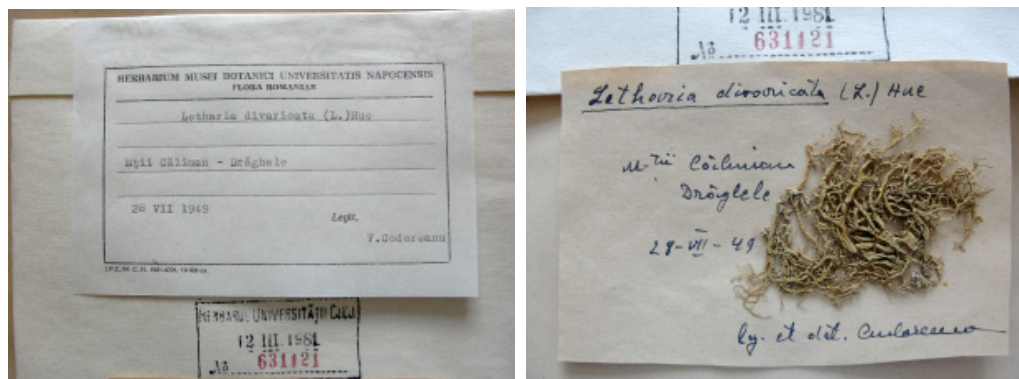 HERBARIUM MUSEI BOTANICI UNIVERSITATIS NAPOCENSIS
FLORA ROMANIAE
Letharia divaricata (L.)Hue
Mţii Căliman - Drăghele
28 VII 1949
Legit,
V.Codoreanu
HERBARUL UNIVERSITĂŢII CLUJ
12 III. 1981
№ 631121
12 III. 1981
№ 631121
Letharia divaricata (L.) Hue
M-ţii Căliman
Drăghele
28-VII-49
leg. et det. Codoreanu